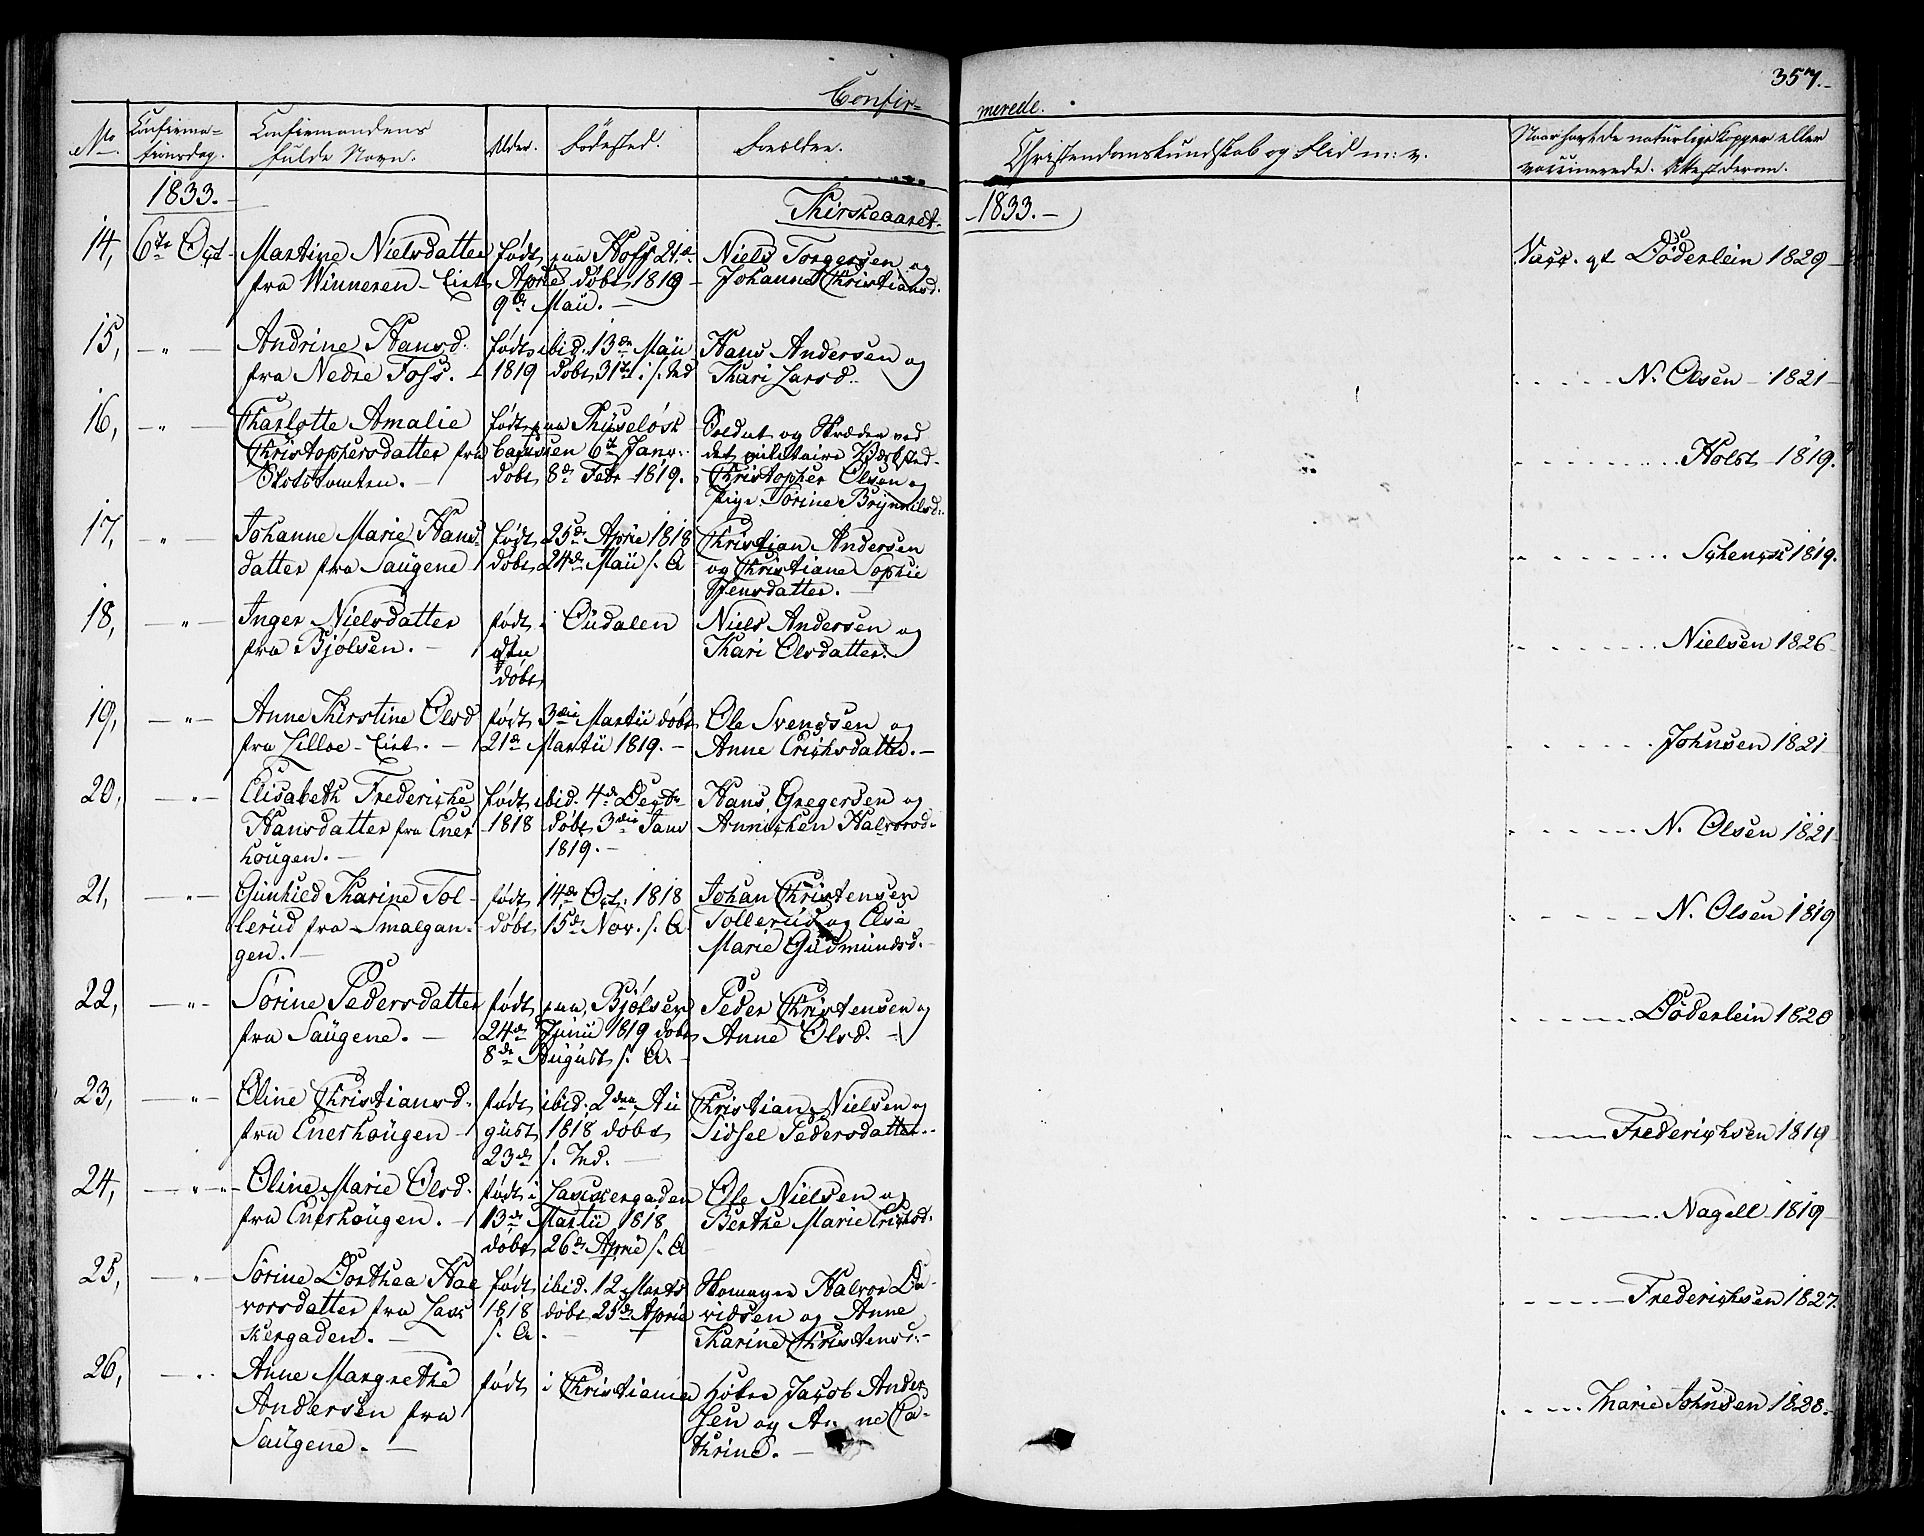 357.
Confir-
merede.
No. Confirma- Confirmandens Alder. Fødested. Forældre. Christendomskundskab og Flid m: v. Naar havde naturlige Kopper eller
tionsdag. fulde Navn. vaccinerede. Attest derom.
1833. 1833.
14, 6te Oct Martine Nielsdatter født paa Hoff 21de Niels Torgersen og Vacc. af Döderlein 1829
fra Winneren-Eiet April døbt 1819 Johanne Christiansd.
9de Maii.
15, Andrine Hansd. født ibid. 13de Maii Hans Andersen og
fra Nedre Foss. 1819 døbt 31te i s. Md Kari Larsd. N. Olsen 1821
16, Charlotte Amalie født paa Soldat og Skræder ved
Christophersdatter fra 6te Janv. det militaire
Slotstomten. døbt 8de Febr 1819. Christopher Olsen og Holst 1819.
Pige Sørine
17, Johanne Marie Hans- født 25de April 1818 Christian Andersen
datter fra Saugene døbt 24de Maii s. A og Christiane Sophie Schenck 1819.
Jensdatter.
18, Inger Nielsdatter født i Oudalen Niels Andersen og
fra Bjølsen. Kari Olsdatter. Nielsen 1826
døbt
19, Anne Kirstine Olsd født 3die Martii døbt Ole Svendsen og
fra Lilloe-Eiet. 21de Martii 1819. Anne Erichsdatter. Johnsen 1821
20, Elisabeth Frederiche født ibid. 4de Decbr Hans Gregersen og
Hansdatter fra Ener 1818 døbt 3die Janv Annichen Halvorsd. N. Olsen 1821
hougen. 1819.
21, Gunhild Karine Tol- født 14de Oct. 1818 Johan Christensen
lerud fra Smalgan- døbt 15de Nov. s. A Tollerud og Else N. Olsen 1819
gen. Marie Gudmundsd.
22, Sørine Pedersdatter født paa Bjølsen Peder Christensen og
fra Saugene. 24de Junii 1819 døbt Anne Olsd. Döderlein 1820
8de August s. A.
23, Oline Christiansd. født ibid. 2den Au Christian Nielsen og
fra Enerhougen gust 1818 døbt Sidsel Pedersdatter. Frederichsen 1819
23de s. Md.
24, Oline Marie Olsd. født i Lakkergaden Ole Nielsen og
fra Enerhougen. 13de Martii 1818 Berthe Marie Erichsd. Nagell 1819
døbt 26de April s. A
25, Sørine Dorthea Hal født ibid. 12 Marts Skomager Halvor Da-
vorsdatter fra Lak 1818 døbt 25de April vidsen og Anne Frederichsen 1827.
kergaden. s. A. Karine Christensd.
26, Anne Margrethe født i Christiania Jacob Ander
Andersen fra sen og Anne Ca- Marie Johnsen 1828.
Saugene. thrine.